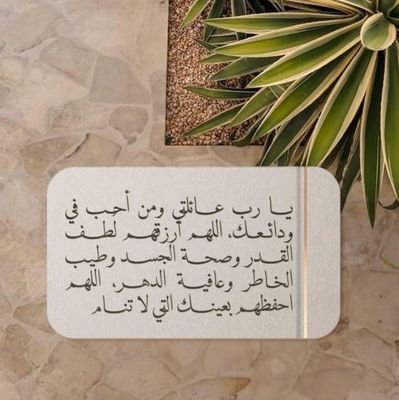 يا رب عائلتي ومن أحب في
ودائعك، اللهم أرزقهم لُطف
القدر وصحة الجسد وطيب
الخاطر وعافية الدهر، اللهم
احفظهم بعينك التي لا تنام